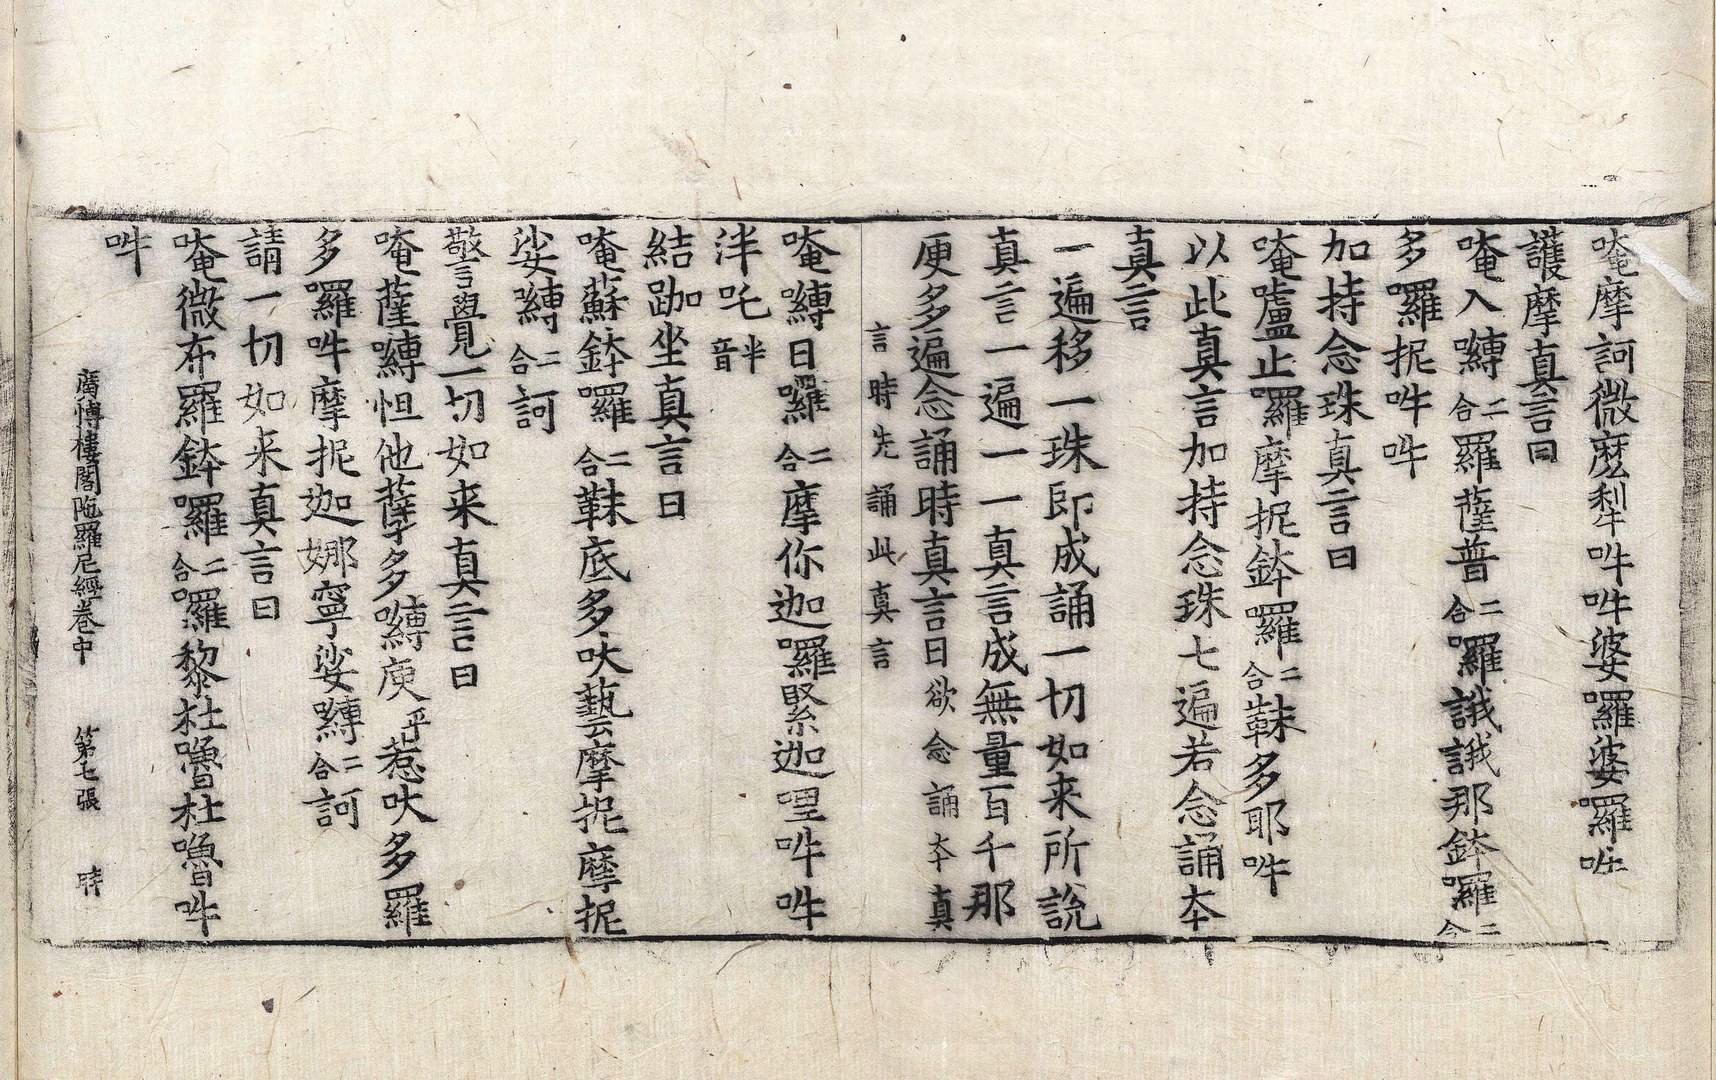 唵摩訶微麽犁吽吽婆囉婆囉吽
護摩真言曰
唵入嚩二合羅薩普二合囉誐誐那鉢囉二合
多囉抳吽吽
加持念珠真言曰
唵嚧止囉摩抳鉢囉二合靺多耶吽
以此真言加持念珠七遍若念誦本
真言
一遍移一珠即成誦一切如来所說
真言一遍一一真言成無量百千那
庾多遍念誦時真言曰欲念誦本真
言時先誦此真言
唵嚩日囉二合摩你迦囉緊迦哩吽吽
泮吒半音
結跏坐真言曰
唵蘇鉢囉二合靺底多吠藝摩抳摩抳
娑嚩二合訶
警覺一切如来真言曰
唵薩嚩怛他孽多嚩庾乎惹吠多羅
多囉吽摩抳迦娜寧娑嚩二合訶
請一切如来真言曰
唵微布羅鉢囉二合囉黎杜嚕杜嚕吽
吽
廣博樓閣陁羅尼經卷中 第七張 時